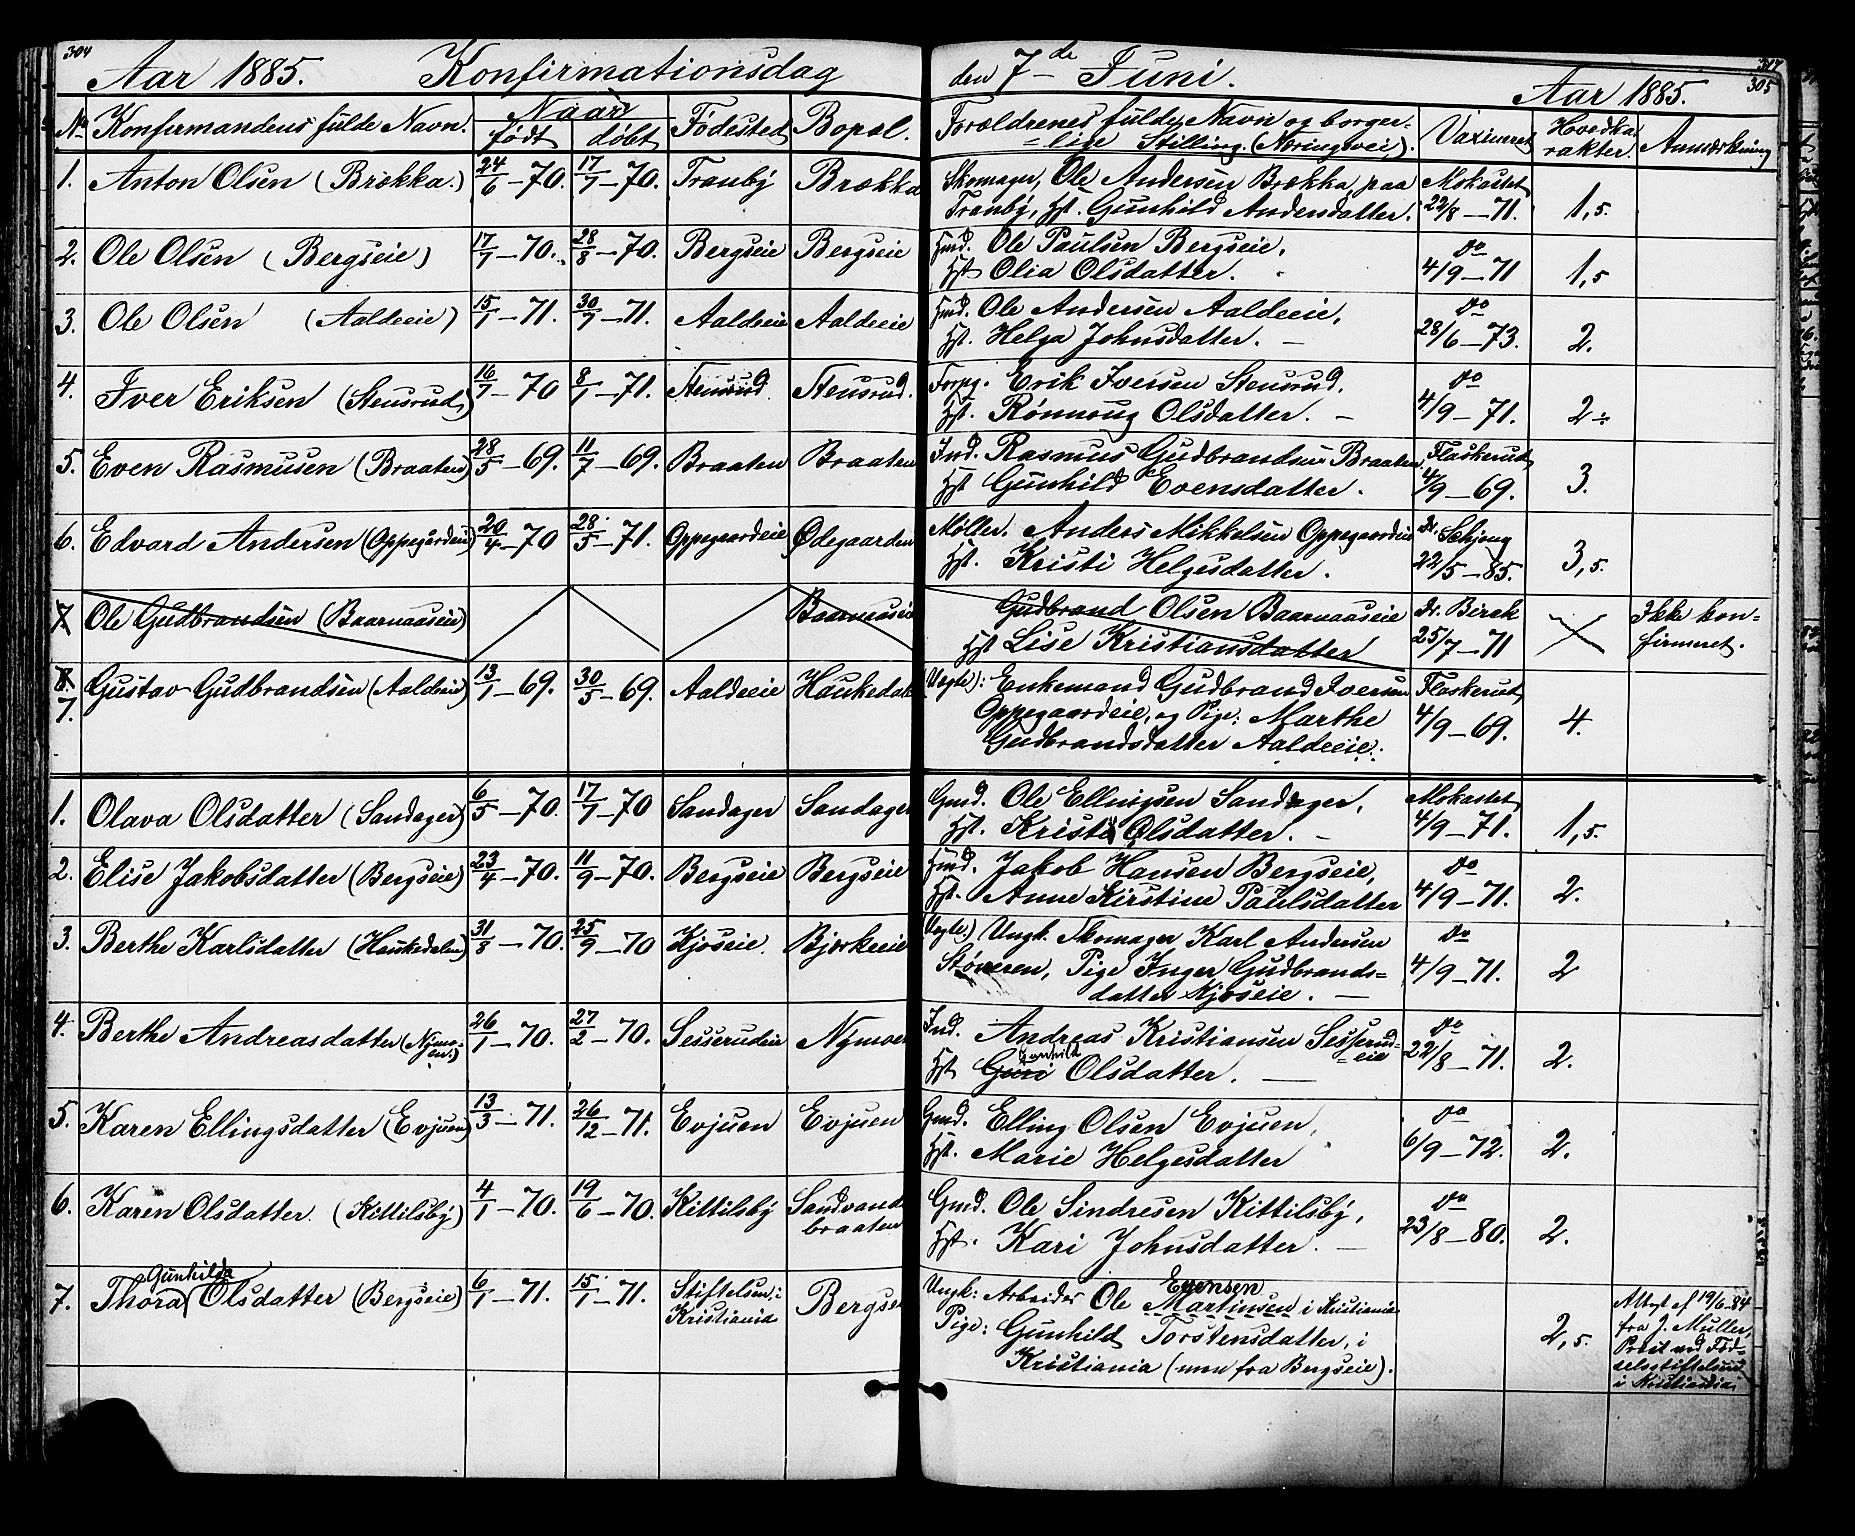 304
Aar 1885. Konfirmationsdag den 7de Juni. Aar 1885. 305
No Konfirmandens fulde Navn. Naar født døbt Fødested Bopæl. Forældrenes fulde Navn og borgerlige Stilling (Næringsvei). Vaxineret Hovedkarakter. Anmærkning
1. Anton Olsen (Brækka.) 24/6-70. 17/7-70. Tranby Brækka Skomager, Ole Andersen Brækka, paa Mokastet
Tranby, Hst. Gunhild Andersdatter. 22/8-71. 1,5.
2. Ole Olsen (Bergseie) 17/7-70. 28/8-70. Bergseie Bergseie Hmd. Ole Paulsen Bergseie, do
Hst Olia Olsdatter. 4/9-71 1,5
3. Ole Olsen (Aaldeeie) 15/1-71. 30/7-71. Aaldeeie Aaldeeie Hmd. Ole Andersen Aaldeeie, do
Hst. Helga Johnsdatter. - 28/6-73. 2.
4. Iver Eriksen (Stensrud) 16/7-70 8/1-71. Stensrud Stensrud. Forpg. Erik Iversen Stensrud, do
Hst. Rønnoug Olsdatter. - 4/9-71. 2÷
5. Even Rasmusen (Braaten) 28/5-69. 11/7-69. Braaten Braaten Ind. Rasmus Gudbrandsen Braaten, Flaskerud
Hst Gunhild Evensdatter. 4/9-69. 3.
6. Edvard Andersen (Oppegardeie) 20/4-70 28/5-71. Oppegaardeie Ødegaarden Møller. Anders Mikkelsen Oppegaardeie Dr. Schjong
Hst. Kristi Helgesdatter. 22/5-85. 3,5.
7 Ole Gudbrandsen (Baarnaaseie) Baarnaaseie Gudbrand Olsen Baarnaaseie Dr. Birch Ikke kon=
Hst Lise Kristiansdatter 25/7-71 firmeret.
8. Gustav Gudbrandsen (Aaldeeie) 13/1-69. 30/5-69. Aaldeeie Haukedal Uægte): Enkemand Gudbrand Iversen Flaskerud
7. Oppegaardeie, og Pige: Marthe 4/9-69. 4.
Gudbrandsdatter Aaldeeie.
1. Olava Olsdatter (Sandager) 6/5-70. 17/7-70 Sandager Sandager Gmd. Ole Ellingsen Sandager, Mokastet
Hst. Kristi Olsdatter. - 4/9-71. 1,5.
2. Elise Jakobsdatter (Bergseie) 23/4-70. 11/9-70. Bergseie Bergseie Hmd. Jakob Hansen Bergseie, do
Hst. Anne Kirstine Paulsdatter 4/9-71. 2.
3. Berthe Karlsdatter (Haukedalen) 31/8-70. 25/9-70 Kjoseie. Bjørkeeie Uægte.) Ungk. Skomager Karl Andersen do
Støveren, Pige Inger Gudbrands= 4/9-71. 2
datter Kjoseie. -
4. Berthe Andreasdatter (Nymoen.) 26/1-70. 27/2-70. Sesserudeie Nymoen Ind. Andreas Kristiansen Sesserud=eie do
Hst Guri Gunhild Olsdatter. - 22/8-71. 2.
5. Karen Ellingsdatter (Evjuen) 13/3-71. 26/12-71. Evjuen Evjuen Gmd. Elling Olsen Evjuen, do
Hst. Marie Helgesdatter 6/9-72. 2.
6. Karen Olsdatter. (Kittilsby) 4/1-70. 19/6-70. Kittilsby Sandvandbraaten Gmd. Ole Sindresen Kittilsby, do
Hst. Kari Johnsdatter. - 23/8-80. 2.
7. Thora Gunhilda Olsdatter (Bergseie) 6/1-71. 15/1-71. Stiftelsen, i Kristiania Bergseie Ungk: Arbeider Ole Evensen Martinsen i Kristiania
Pige: Gunhild Torstensdatter, i 2,5.
Kristiania (men fra Bergseie).
Attest af 19/6-84
fra J. Müller,
Præst ved Fød=
selsstiftelsen
i Kristiania